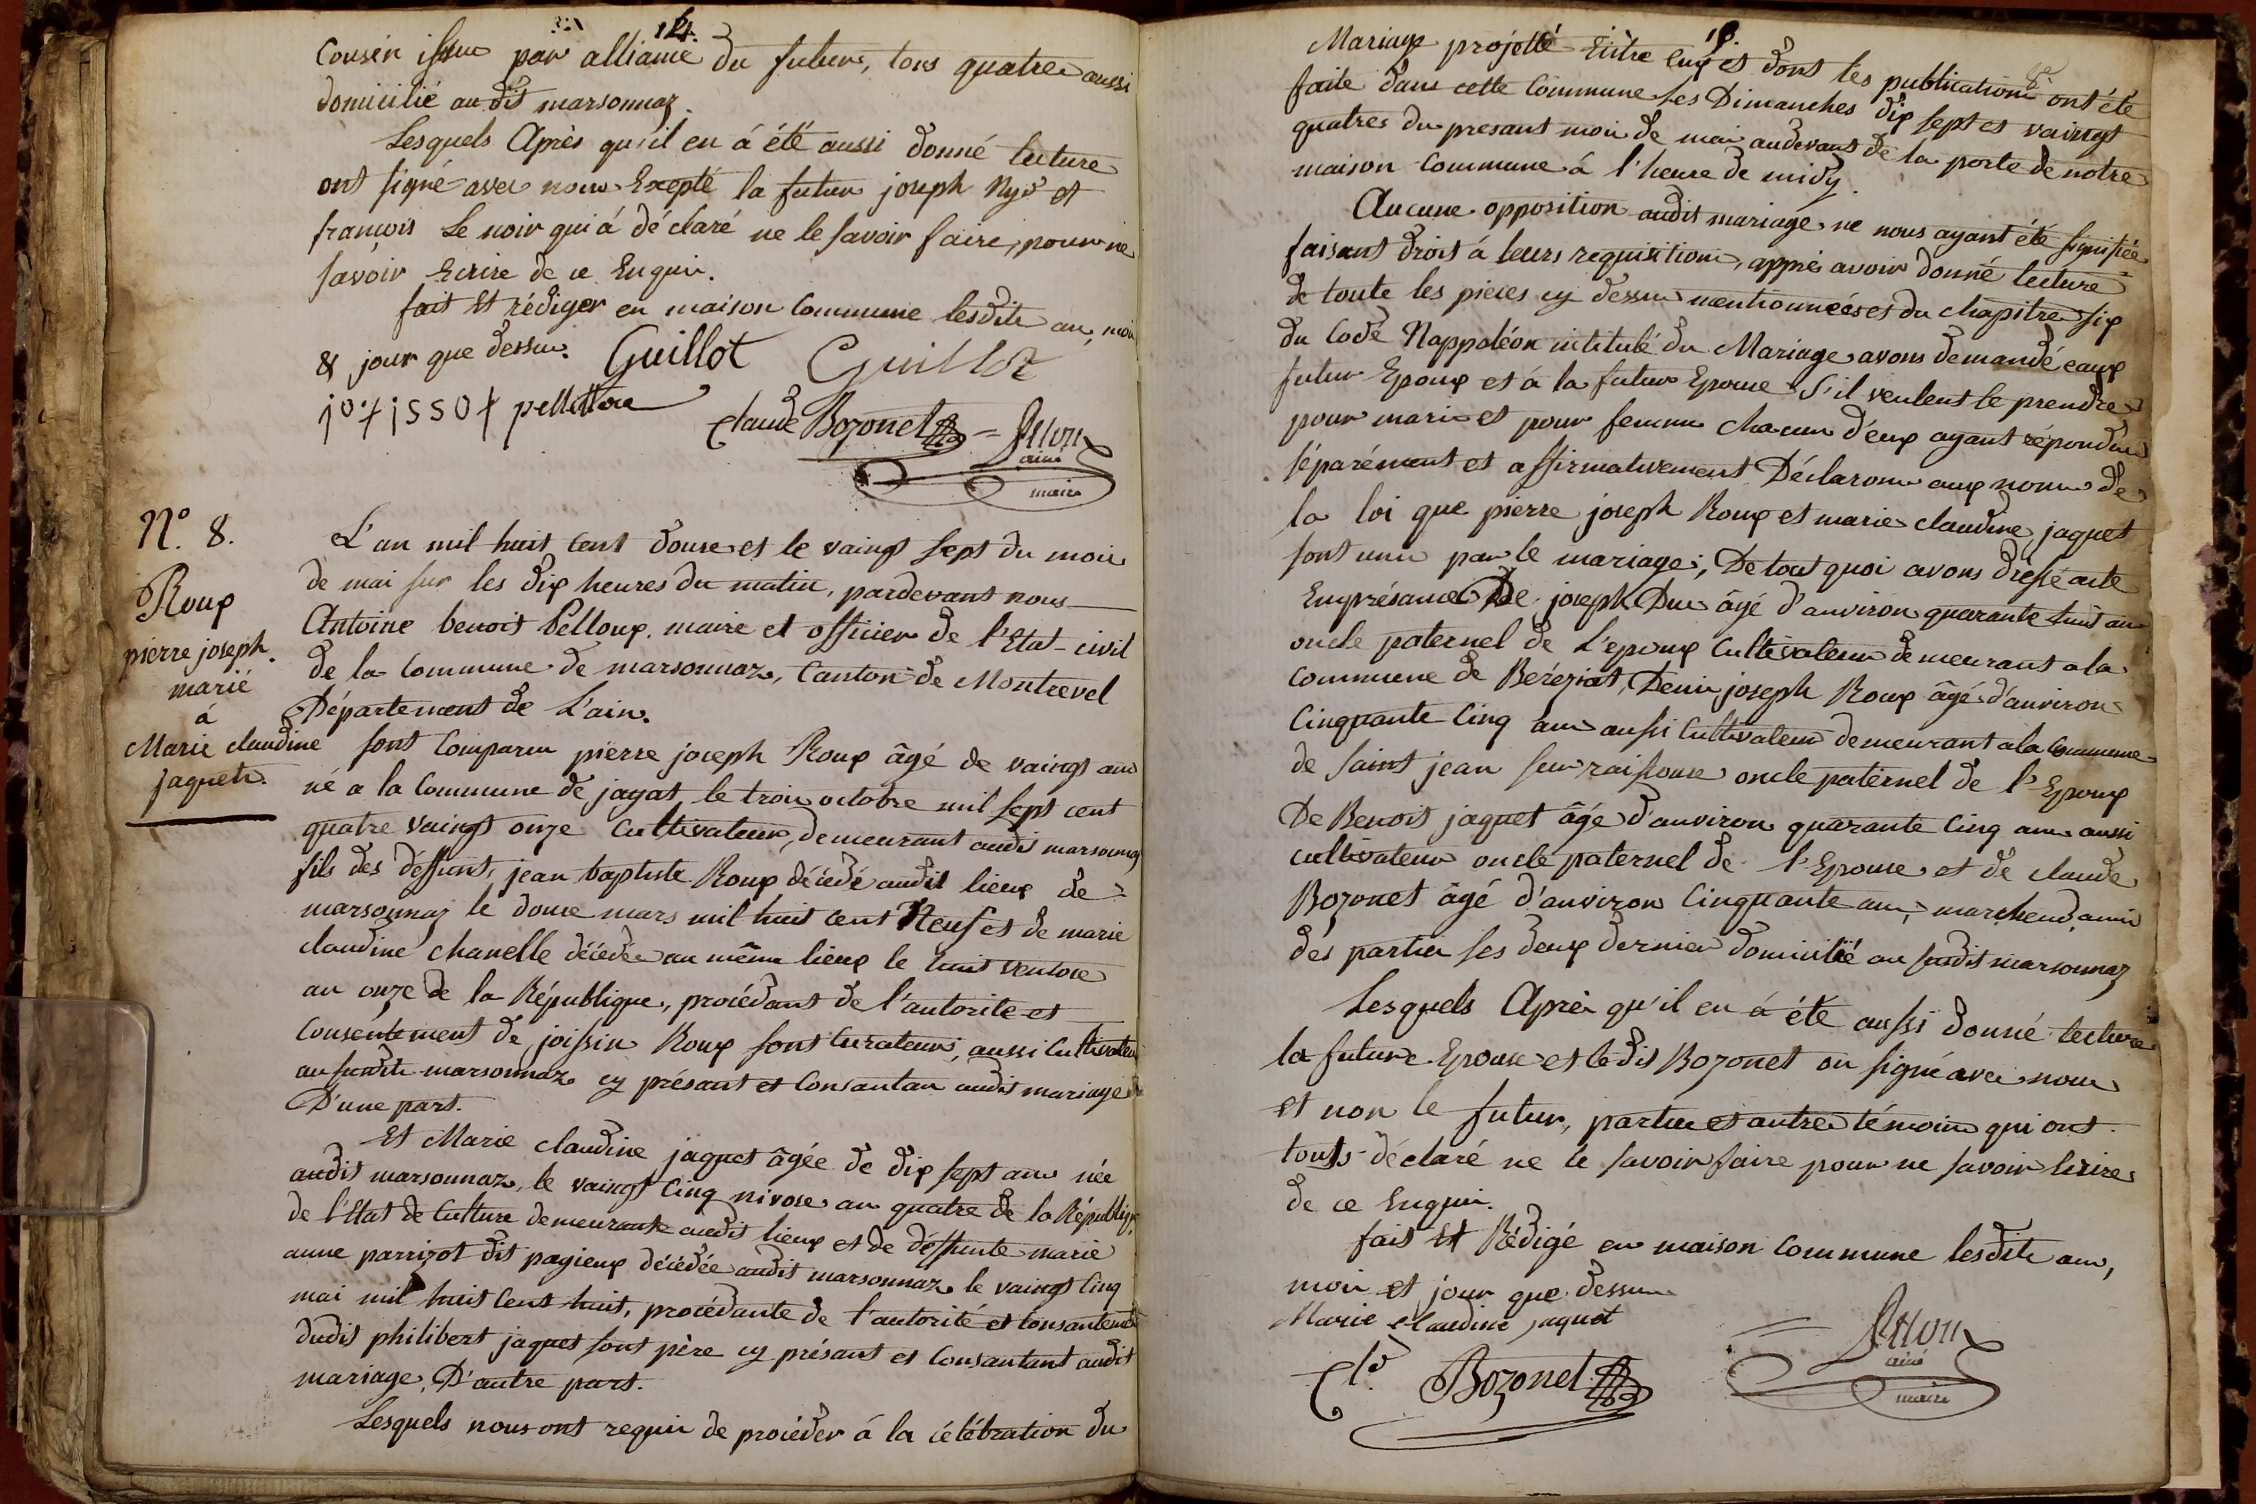 14.
Cousin issu par alliance du futur, tous quatre aussi
domicilié audit marsonnaz.
Lesquels Après qu'il en á été aussi donné lecture
ont signé avec nous Exepté la futur joseph Nyd et
françois Le noir qui á déclaré ne le savoir faire, pour ne
savoir Ecrire de ce Enquis.
fait Et rédiger en maison Commune lesdits an, mois
& jour que dessus. Guillot Guillot
pelletier
Claude Bozonet
ainé
maire
N.º 8.
Roux
pierre joseph.
marié
á
Marie claudine
jaquet.
L'an mil huit cent douse et le vaingt sept du mois
de mai sur les dix heures du matin, pardevant nous
Antoine benoit Pelloux, maire et officier de l'Etat-civil
de la Commune de marsonnaz, Canton de Montrevel
Département de L'ain.
sont Comparu pierre joseph Roux âgé de vaingt ans
né a la Commune de jayat le trois octobre mil sept cent
quatre vaingt onze Cultivateur, demeurant audit marsonnaz
fils des deffunt, jean baptiste Roux décédé audit lieux de
marsonnaz le douse mars mil huit cent Neuf et de marie
claudine chanelle décédée au même lieux le huit ventose
an onze de la République, procédant de l'autorite et
Consentement de joissin Roux sont Curateur, aussi Cultivateur
au susdit marsonnaz cy présant et Consantan audit mariage
D'une part.
Et Marie claudine jaquet âgée de dix sept ans née
audit marsonnaz, le vaingt Cinq nivose an quatre de la Républiq.
de l'Etat de Culture demeurante audit lieux et de deffunte marie
anne parrizot dit pagieux décédée audit marsonnaz le vaingt Cinq
mai mil huit Cent huit, procédante de l'autorité et Consantement
dudit philibert jaquet sont père cy présant et Consantant audit
mariage, D'autre part.
Lesquels nous ont requis de procéder á la célébration du
Mariage projetté Entre eux et dont les publications ont été
faite dans cette Commune les Dimanches dix sept et vaingt
quatres du presant mois de mai audevant de la porte de notre
maison Commune á l'heure de midy.
Aucune opposition audit mariage ne nous ayant été signifiée
faisant droit á leurs requisitions, appré avoir donné lecture
de toute les pieces cy dessus mentionnées et du chapitre six
du Code Nappoléon intitulé du Mariage avons demandé eaux
futur Epoux et á la futur Epouse s'il veulent se prendre
pour mari et pour femme chacun d'eux ayant répondus
séparément et affirmativement Déclarons aux noms de
la loi que pierre joseph Roux et marie claudine jaquet
sont unis par le mariage; De tout quoi avons dressé acte
Emprésance De joseph Duc âgé d'anviron quarante huit ans
oncle paternel de L'epoux Cultivateur demeurant a la
Commune de Beréziat, Denis joseph Roux âgé d'anviron
Cinquante Cinq ans aussi Cultivateur demeurant a la Commune
de saint jean sur raissouse oncle paternel de l'Epoux
De Benoit jaquet âgé d'anviron quarante Cinq ans aussi
cultivateur oncle paternel de l'Epouse et de claude
Bozonet âgé d'anviron Cinquante ans, marchend, amis
des parties les deux dernier domicilié au susdit marsonnaz
Lesquels Après qu'il en á été aussi donné lecture
la future Epouse et ledit Bozonet on signé avec nous
et non le futur, parties et autres témoins qui ont
touts déclaré ne le savoir faire pour ne savoir Ecrire
de ce Enquis.
fait Et Rédigé en maison Commune lesdits an,
mois et jour que dessus
Marie claudine jaquet
Cl.d Bozonet
ainé
maire